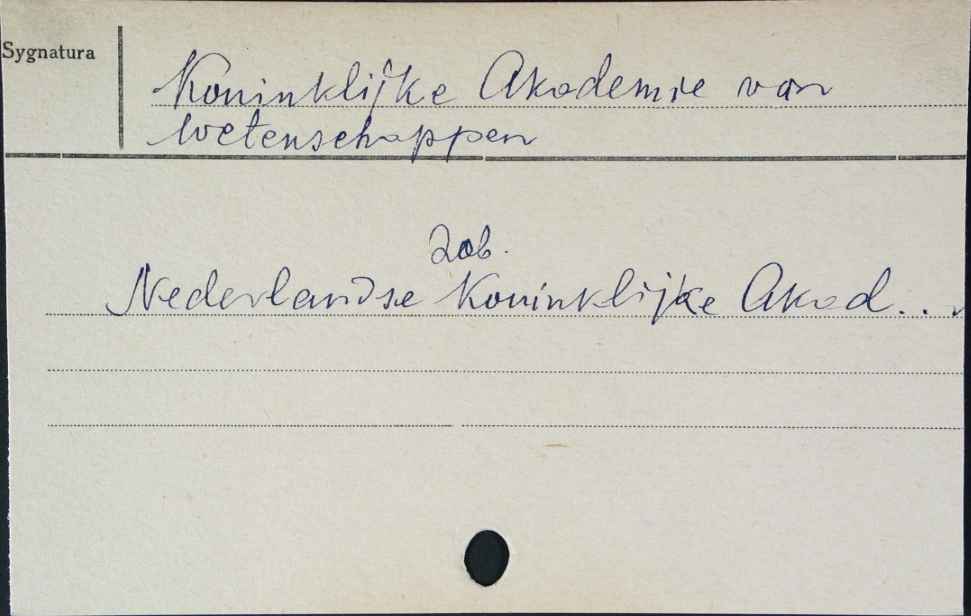 Sygnatura
Koninklijke Akademie van
Wetenschappen
Zob.
Nederlandse Koninklijke Akad...